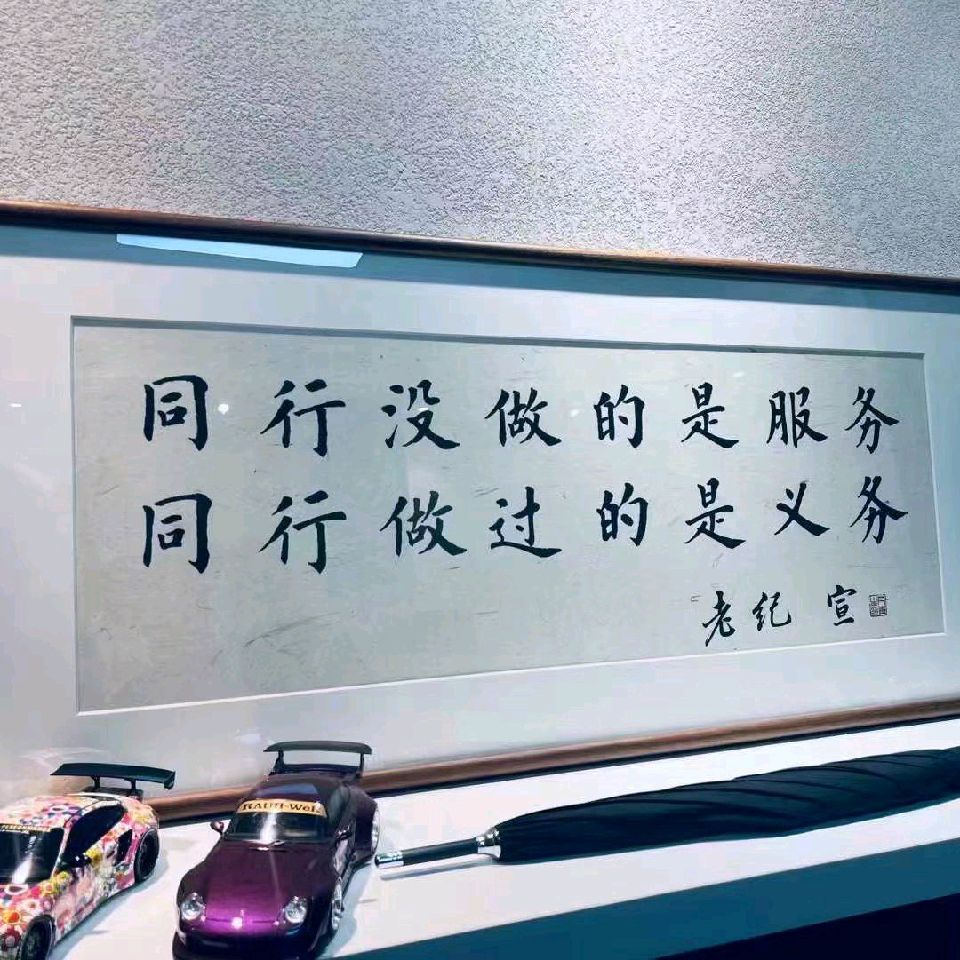 同行没做的是服务
同行做过的是义务
老纪 宣
RAUH-Welt